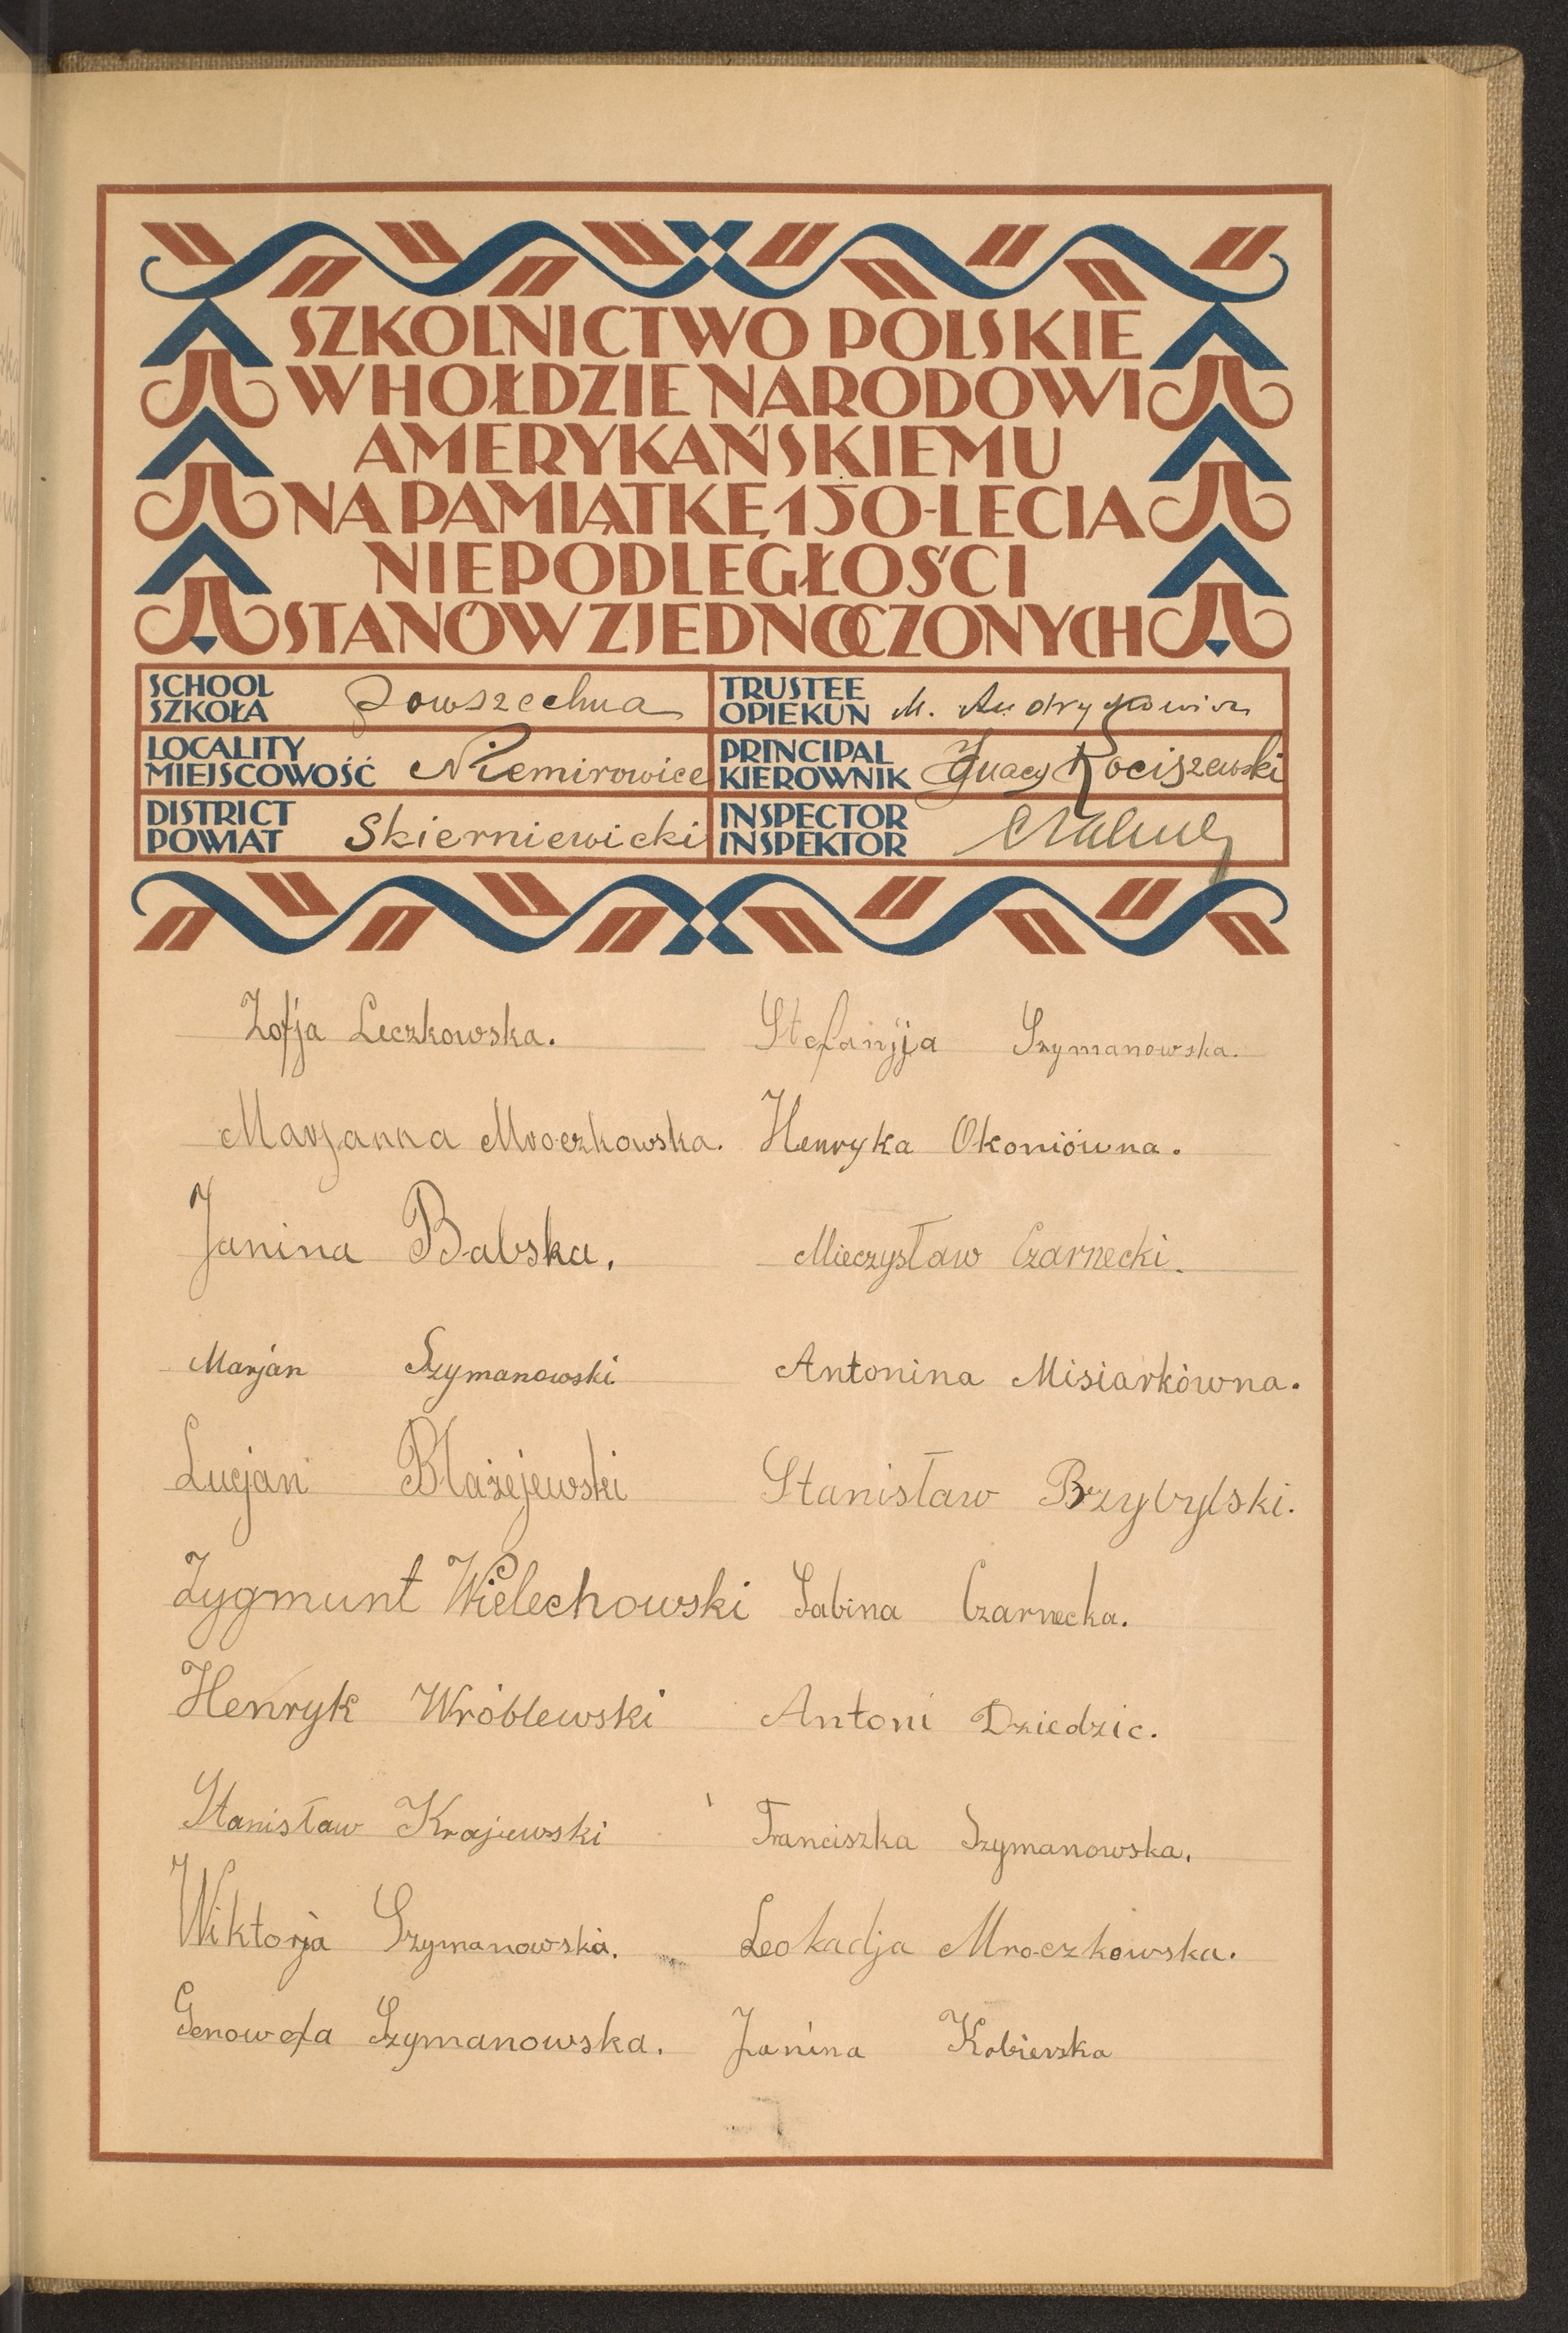 SZKOLNICTWO POLSKIE
W HOŁDZIE NARODOWI
AMERYKAŃSKIEMU
NA PAMIĄTKĘ 150-LECIA
NIEPODLEGŁOŚCI
STANÓW ZJEDNOCZONYCH
SCHOOL
SZKOŁA Powszechna
TRUSTEE
OPIEKUN M.
LOCALITY
MIEJSCOWOŚĆ Niemirowice
PRINCIPAL
KIEROWNIK Ignacy Rociszewski
DISTRICT
POWIAT Skierniewicki
INSPECTOR
INSPEKTOR
Zofja Leczkowska.
Stefanjja Szymanowska.
Marjanna Mroczkowska.
Henryka Okoniówna.
Janina Babska.
Mieczysław Czarnecki.
Marjan Szymanowski
Antonina Misiarkówna.
Lucjan Błażejewski
Stanisław Brzybylski.
Zygmunt Wielechowski
Sabina Czarnecka.
Henryk Wróblewski
Antoni Dziedzic.
Stanisław Krajewski
Franciszka Szymanowska.
Wiktorja Szymanowska.
Leokadja Mroczkowska.
Genowefa Szymanowska.
Janina Kobierska